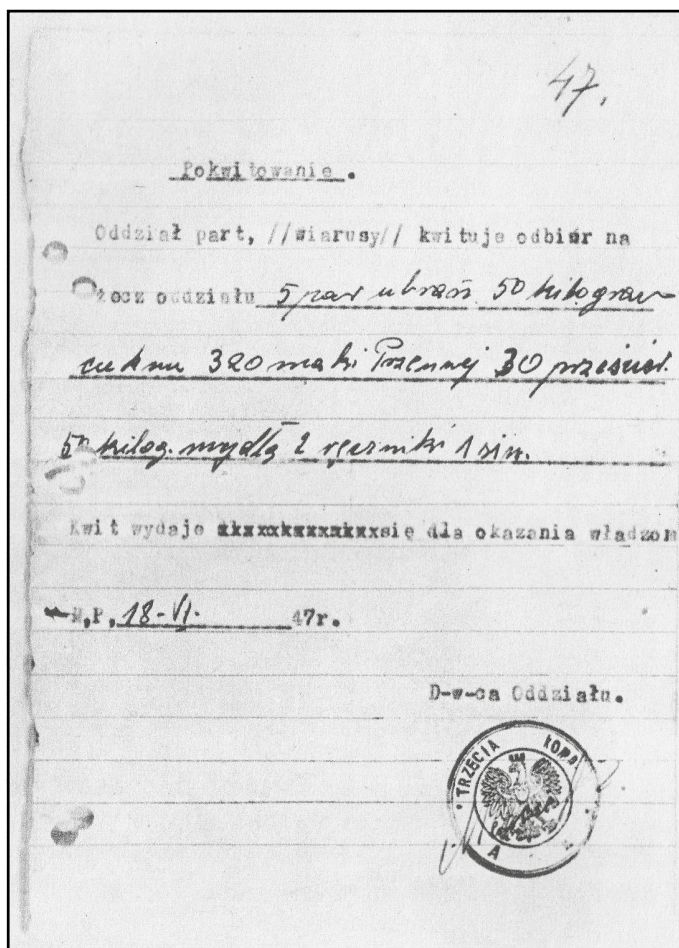 47.
Pokwitowanie.
Oddział part, //wiarusy// kwituje odbiór na
rzecz oddziału 5 par ubrań 50 kilogram
cukru 320 mąki Przennej 30 prześcier.
50 kilog. mydłą 2 ręczniki 1
Kwit wydaje się dla okazania władzom
M,P, 18-VI- 47r.
D-w-ca Oddziału.
TRZECIA KOMP
A